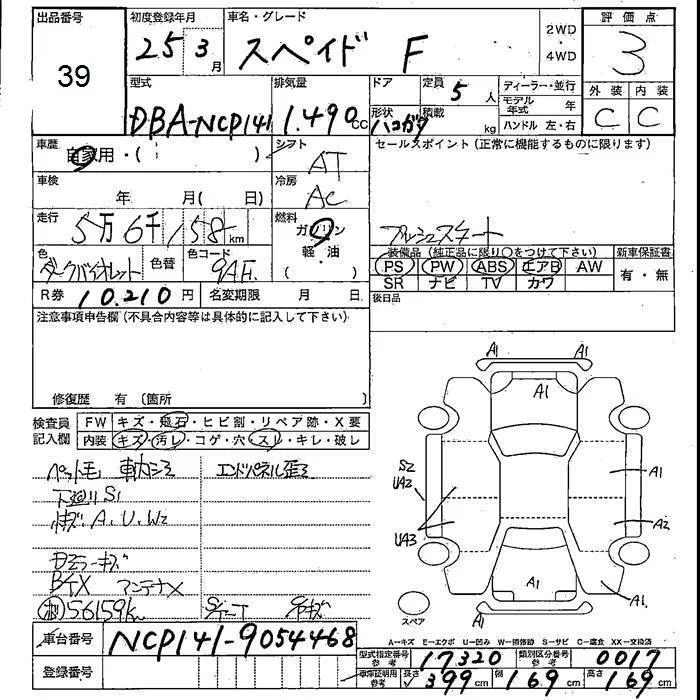 出品番号
39
初度登録年月 車名・グレード 評価点
25 3月 スペイド F 2WD・4WD 3
型式 排気量 ドア 定員 ディーラー・並行 外装 内装
DBA-NCP141 1.490cc 形状 ハコガタ 5人 積載 kg モデル年式 年 ハンドル 左・右 C C
車歴 自家用・( ) シフト AT セールスポイント(正常に機能するものに限ります)
車検 年 月( 日) 冷房 AC
走行 5万6千158km 燃料 ガソリン 軽・油 ( )
色 色替 色コード 9AH
装備品(純正品に限り○をつけて下さい) 新車保証書
PS PW ABS エアB AW 有・無
SR ナビ TV カワ
R券 10.210円 名変期限 月 日 後日品
注意事項申告欄(不具合内容等は具体的に記入して下さい)
修復歴 有 (箇所 )
検査員記入欄 FW キズ・飛石・ヒビ割・リペア跡・X要
内装 キズ・汚レ・コゲ・穴・スレ・キレ・破レ
ペット毛 エンドパネル歪
下廻りS1
A、U、W2
アンテナX
56159km
A1 A1
A1
S2 UA2 A1
UA3 A2
A1 A1
A1
スペア
A-キズ E-エクボ U-凹み W-補修跡 S-サビ C-腐食 XX-交換済
車台番号 NCP141-9054468
登録番号
型式指定番号 参考 17320 類別区分番号 参考 0017
車庫証明用 参考 長さ 399cm 幅 169cm 高さ 169cm